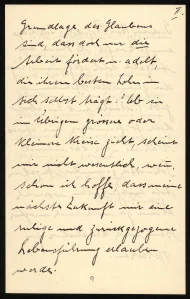 II
Grundlage des Glaubens
sind, dass doch nur die
Arbeit fördert u. adelt,
die ihren besten Lohn in
sich selbst trägt! Ob sie
im Übrigen grosse oder
kleinere Kreise zieht, scheint
mir nicht wesentlich, wenn
schon ich hoffe dass meine
nächste Zukunft mir eine
ruhige und zurückgezogene
Lebensführung erlauben
werde.